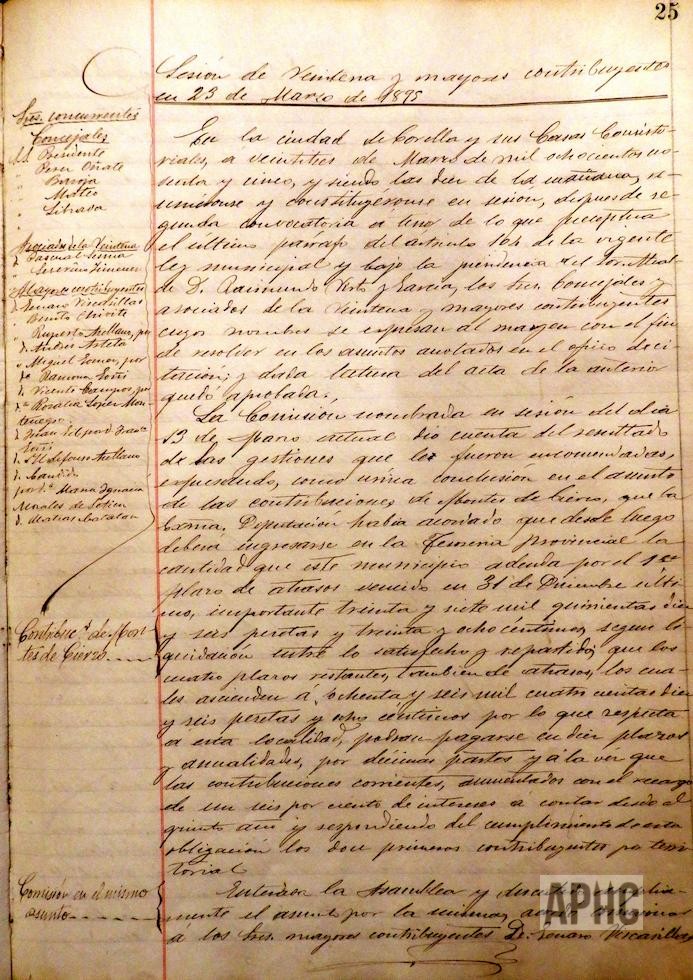 25
Sesión de Veintena y mayores contribuyentes
en 23 de Marzo de 1895
Sres. concurrentes
Concejales
Sr. Presidente
" Perez Oñate
" Baroja
" Mateo
" Litrava
Asociados de la Veintena
D. Pascual Sesma
" Severino Jimenez
Mayores contribuyentes
D. Genaro Viscasillas
" Benito
" Ruperto Arellano, por
D. Andres Arteta
" Miguel, por
D.ª Ramona Goñi
D. Vicente Campos, por
D.ª Rosalia Lopez Mon-
tenegro
D. Juan
Goñi
D. Ildefonso Arellano
D. Candido
por D.ª Maria Ignacia
Morales de
D. Matias Catalan
En la ciudad de Corella y sus Casas Consisto-
riales, a veintitres de Marzo de mil ochocientos no-
venta y cinco, y siendo las diez de la mañana, re-
unieronse y constituyéronse en sesión, despues de se-
gunda convocatoria á tenor de lo que preceptua
el ultimo parrafo del articulo 104 de la vigente
ley municipal y bajo la presidencia del Señor Alcal-
de D. Raimundo y Garcia, los Sres. Concejales y
asociados de la Veintena y mayores contribuyentes
cuyos nombres se expresan al margen con el fin
de resolver en los asuntos anotados en el oficio de ci-
tación; y dada lectura del acta de la anterior
quedo aprobada.
La Comision nombrada en sesión del dia
13 de Marzo actual dio cuenta del resultado
de las gestiones que le fueron encomendadas,
expresando, como unica conclusión en el asunto
de las contribuciones de Montes de Cierzo, que la
Excma. Diputacion habia acordado que desde luego
deberá ingresarse en la Tesoreria provincial la
cantidad que este municipio adeuda por el 1er
plazo de atrasos vencido en 31 de Diciembre ulti-
mo, importante treinta y siete mil quinientas diez
y seis pesetas y treinta y ocho céntimos, segun li-
quidación entre lo satisfecho y repartido; que los
cuatro plazos restantes, tambien de atrasos, los cua-
les ascienden á ochenta y seis mil cuatrocientas diez
y seis pesetas y ocho céntimos por lo que respecta
á esta localidad, podran pagarse en diez plazos
y anualidades, por décimas partes y á la vez que
las contribuciones corrientes, aumentados con el recargo
de un seis por ciento de intereses a contar desde el
quinto año y respondiendo del cumplimiento de esta
obligación los doce primeros contribuyentes por terri-
torial.
Contribuc.n de Mon-
tes de Cierzo
Comision en el mismo
asunto
Enterada la Asamblea y
mente el asunto por la misma,
á los Sres. mayores contribuyentes D. Genaro Viscasillas
APHC